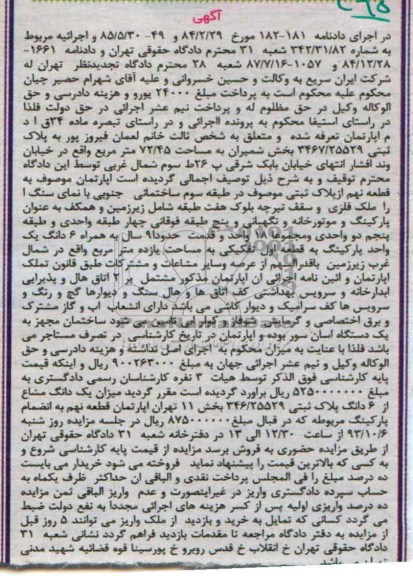 آگهی
در اجرای دادنامه ۱۸۱-۱۸۲ مورخ ۸۴/۲/۲۹ و ۴۹- ۸۵/۵/۳۰ و اجرائیه مربوط
به شماره ۳۴۲/۳۱/۸۲ شعبه ۳۱ محترم دادگاه حقوقی تهران و دادنامه ۱۶۶۱-
۸۴/۱۲/۲۸ و ۱۰۵۷-۸۷/۷/۱۶ شعبه ۲۸ محترم دادگاه تجدیدنظر تهران له
شرکت ایران سریع به وکالت و حسین خسروانی و علیه آقای شهرام حصیر چیان
محکوم علیه محکوم است به پرداخت مبلغ ۲۴۰۰۰ یورو و هزینه دادرسی و حق
الوکاله وکیل در حق مظلوم له و پرداخت نیم عشر اجرائی در حق دولت فلذا
در راستای استیفا محکوم به پرونده اجرائی و در راستای تبصره ماده ۳۴ق ا د
م اپارتمان تعرفه شده و متعلق به شخص ثالث خانم لعمان فیروز پور به پلاک
ثبتی ۳۴۶۷/۲۵۵۲۹ بخش شمیران به مساحت ۷۲/۴۵ متر مربع واقع در خیابان
وند افشار انتهای خیابان بابک شرقی پ ۲۶ط سوم شمال غربی توسط این دادگاه
محترم توقیف و به شرح ذیل توصیف اجمالی گردیده است اپارتمان موصوف به
قطعه نهم ازپلاک ثبتی موصوف در طبقه سوم ساختمانی جنوبی با نمای سنگ ا
را ملک فلزی و سقف تیرچه بلوک هفت طبقه شامل زیرزمین و همکف به عنوان
پارکینگ و موتورخانه و نگهبانی و پنج طبقه فوقانی چهار طبقه واحدی و طبقه
پنجم دو واحدی ومجموعا واحد و قدمت حدودا۹ سال به همراه ۶ دانگ یک
واحد پارکینگ به قطعه اول تفکیکی به مساحت یازده متر مربع واقع در شمال
غرب زیرزمین باقدرالسهم از عرصه وسایر مشاعات و مشترکات طبق قانون تملک
اپارتمان و ائین نامه اجرائی ان اپارتمان مذکور مشتمل بر ۲ اتاق هال و پذیرایی
ابدارخانه و سرویس بهداشتی کف اتاق ها و هال سنگ و دیوارها گچ و رنگ و
سرویس ها کف سرامیک و دیوار کاشی می باشد دارای انشعاب اب و گاز مشترک
و برق اختصاصی و گرمایش شوفاژ و کولر ابی تامین می شود ساختمان مجهز به
یک دستگاه اسان سور بوده و اپارتمان در تاریخ کارشناسی در تصرف مستاجر می
باشد فلذا با عنایت به میزان محکوم به اجرای اصل نداشته و هزینه دادرسی و حق
الوکاله وکیل و نیم عشر اجرائی جهان به مبلغ ۹۰۰۲۶۳۰۰۰ ریال و اینکه قیمت
پایه کارشناسی فوق الذکر توسط هیات ۳ نفره کارشناسان رسمی دادگستری به
مبلغ ۵۲۵۰۰۰۰۰۰۰ ریال براورد گردیده است مقرر گردید میزان یک دانگ مشاع
از ۶ دانگ پلاک ثبتی ۳۴۶/۲۵۵۲۹ بخش ۱۱ تهران اپارتمان قطعه نهم به انضمام
پارکینگ مربوطه که در قبال مبلغ ۸۷۵۰۰۰۰۰۰ ریال در جلسه مزایده روز شنبه
۹۳/۱۰/۶ از ساعت ۱۲/۳۰ الی ۱۳ در دفترخانه شعبه ۳۱ دادگاه حقوقی تهران
از طریق مزایده حضوری به فروش برسد مزایده از قیمت پایه کارشناسی شروع و
به کسی که بالاترین قیمت را پیشنهاد نماید فروخته می شود خریدار می بایست
ده درصد مبلغ را فی المجلس پرداخت نقدی و الباقی ان حداکثر ظرف یکماه به
حساب سپرده دادگستری واریز در غیراینصورت و عدم واریز الباقی ثمن مزایده
ده درصد واریزی اولیه پس از کسر هزینه های اجرائی مجددا به نفع دولت ضبط
می گردد کسانی که تمایل به خرید و بازدید از ملک واریز می توانند ۵ روز قبل
از مزایده به دفتر دادگاه مراجعه تا مقدمات بازدید فراهم گردد نشانی شعبه ۳۱
دادگاه حقوقی تهران خ انقلاب خ قدس روبرو خ پورسینا قوه قضائیه شهید مدنی